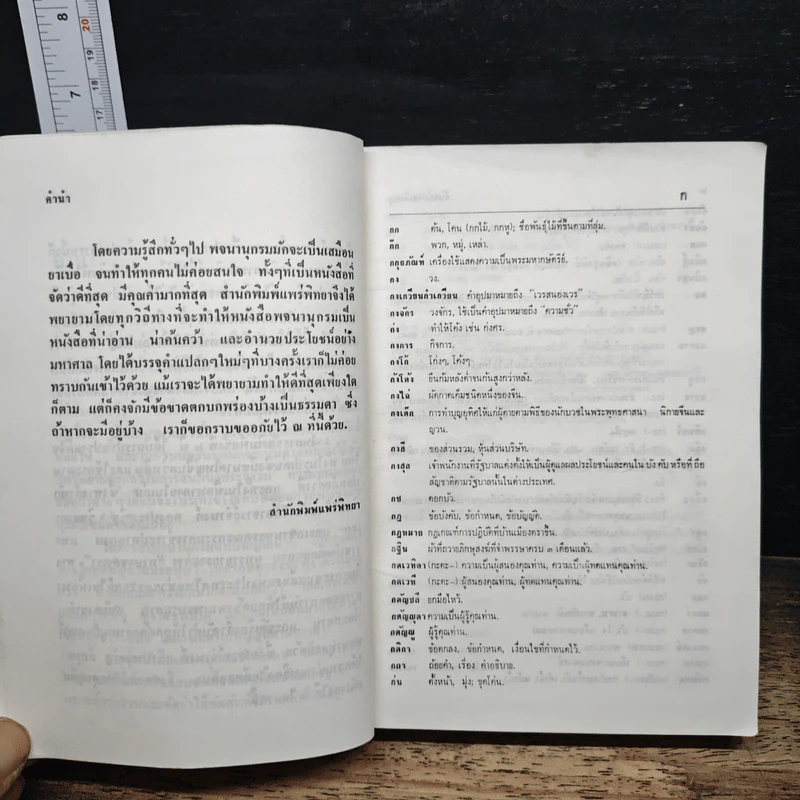 8
20
19
18
7
17
คำนำ
โดยความรู้สึกทั่วๆไป พจนานุกรมมักจะเป็นเสมือน
ยาเบื่อ จนทำให้ทุกคนไม่ค่อยสนใจ ทั้งๆที่เป็นหนังสือที่
จัดว่าดีที่สุด มีคุณค่ามากที่สุด สำนักพิมพ์แพร่พิทยาจึงได้
พยายามโดยทุกวิถีทางที่จะทำให้หนังสือพจนานุกรมเป็น
หนังสือที่น่าอ่าน น่าค้นคว้า และอำนวยประโยชน์อย่าง
มหาศาล โดยได้บรรจุคำแปลกๆใหม่ๆที่บางครั้งเราก็ไม่ค่อย
ทราบกันเข้าไว้ด้วย แม้เราจะได้พยายามทำให้ดีที่สุดเพียงใด
ก็ตาม แต่ก็คงจักมีข้อขาดตกบกพร่องบ้างเป็นธรรมดา ซึ่ง
ถ้าหากจะมีอยู่บ้าง เราก็ขอกราบขออภัยไว้ ณ ที่นี้ด้วย.
สำนักพิมพ์แพร่พิทยา
ก
กก ต้น, โคน (กกไม้, กกหู); ชื่อพันธุ์ไม้ที่ขึ้นตามที่ลุ่ม.
ก๊ก พวก, หมู่, เหล่า.
กกุธภัณฑ์ เครื่องใช้แสดงความเป็นพระมหากษัตริย์.
กง วง.
กงเกวียนกำเกวียน คำอุปมาหมายถึง "เวรสนองเวร"
กงจักร วงจักร, ใช้เป็นคำอุปมาหมายถึง "ความชั่ว"
ก่ง ทำให้โค้ง เช่น ก่งศร.
กงการ กิจการ.
กงโก้ โก่งๆ, โค้งๆ
กงโต้ง ยืนก้มหลังต่ำจนก้นสูงกว่าหลัง.
กงไฉ่ ผักกาดเค็มชนิดหนึ่งของจีน.
กงเต๊ก การทำบุญอุทิศให้แก่ผู้ตายตามพิธีของนักบวชในพระพุทธศาสนา นิกายจีนและ
ญวน.
กงสี ของส่วนรวม, หุ้นส่วนบริษัท.
กงสุล เจ้าพนักงานที่รัฐบาลแต่งตั้งให้เป็นผู้ดูแลผลประโยชน์และคนใน บัง คับ หรือที่ ถือ
สัญชาติตามรัฐบาลนั้นในต่างประเทศ.
กช ดอกบัว.
กฎ ข้อบังคับ, ข้อกำหนด, ข้อบัญญัติ.
กฎหมาย กฎเกณฑ์การปฏิบัติที่บ้านเมืองตราขึ้น.
กฐิน ผ้าที่ถวายภิกษุสงฆ์ที่จำพรรษาครบ ๓ เดือนแล้ว.
กตเวทิตา (กะตะ-) ความเป็นผู้สนองคุณท่าน, ความเป็นผู้ทดแทนคุณท่าน.
กตเวที (กะตะ-) ผู้สนองคุณท่าน, ผู้ทดแทนคุณท่าน.
กตัญชลี ยกมือไหว้.
กตัญญุตา ความเป็นผู้รู้คุณท่าน.
กตัญญู ผู้รู้คุณท่าน.
กติกา ข้อตกลง, ข้อกำหนด, เงื่อนไขที่กำหนดไว้.
กถา ถ้อยคำ, เรื่อง, คำอธิบาย.
ก่น ตั้งหน้า, มุ่ง; ขุดโค่น.